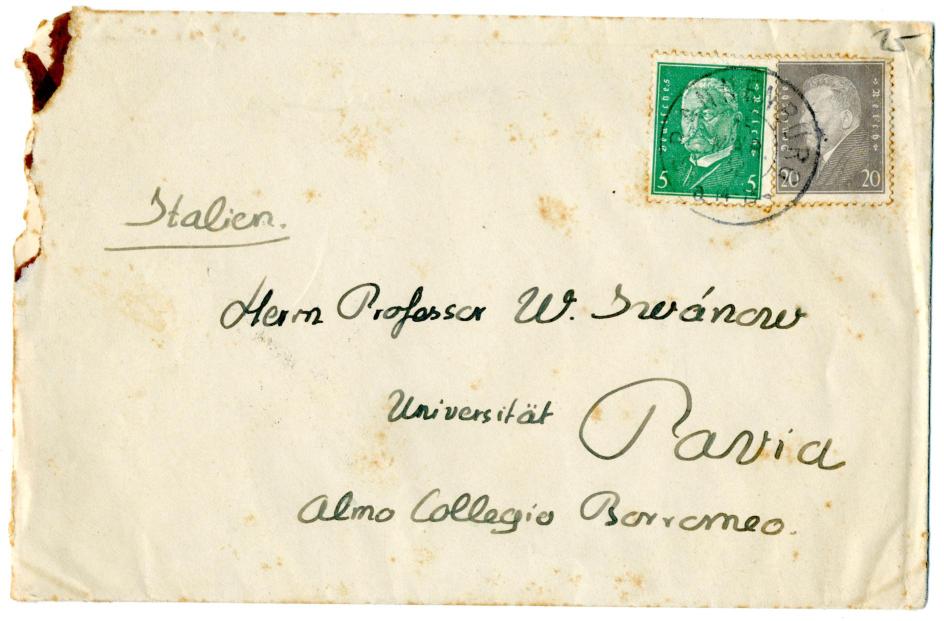 25
Deutsches Reich
5 5
Deutsches Reich
20 20
Italien.
Herrn Professor W. Iwánow
Universität Pavia
Almo Collegio Borromeo.